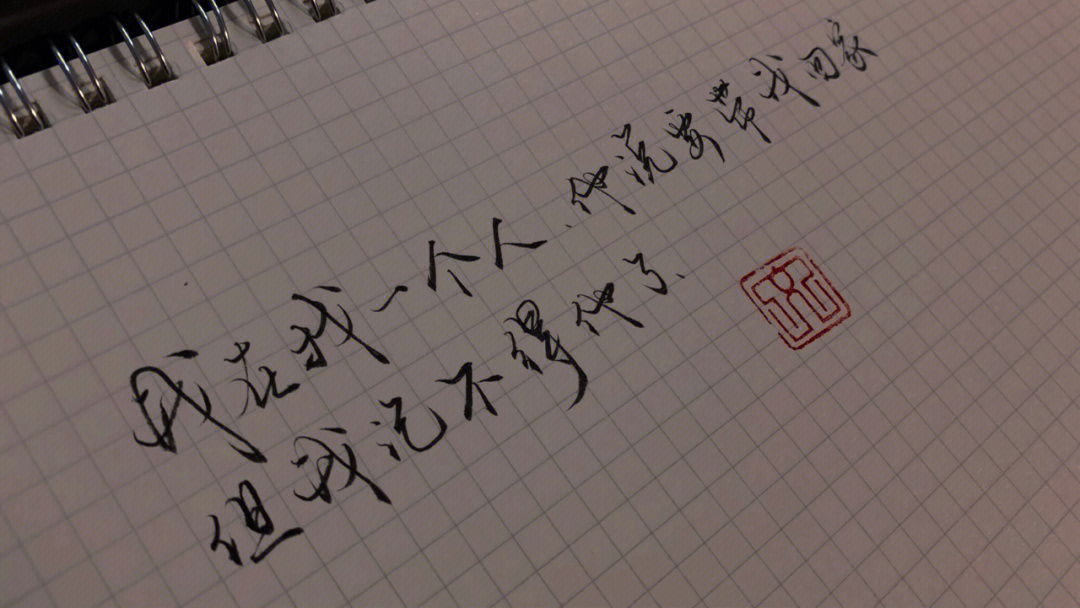 我在找一个人、他说要带我回家
但我记不得他了、